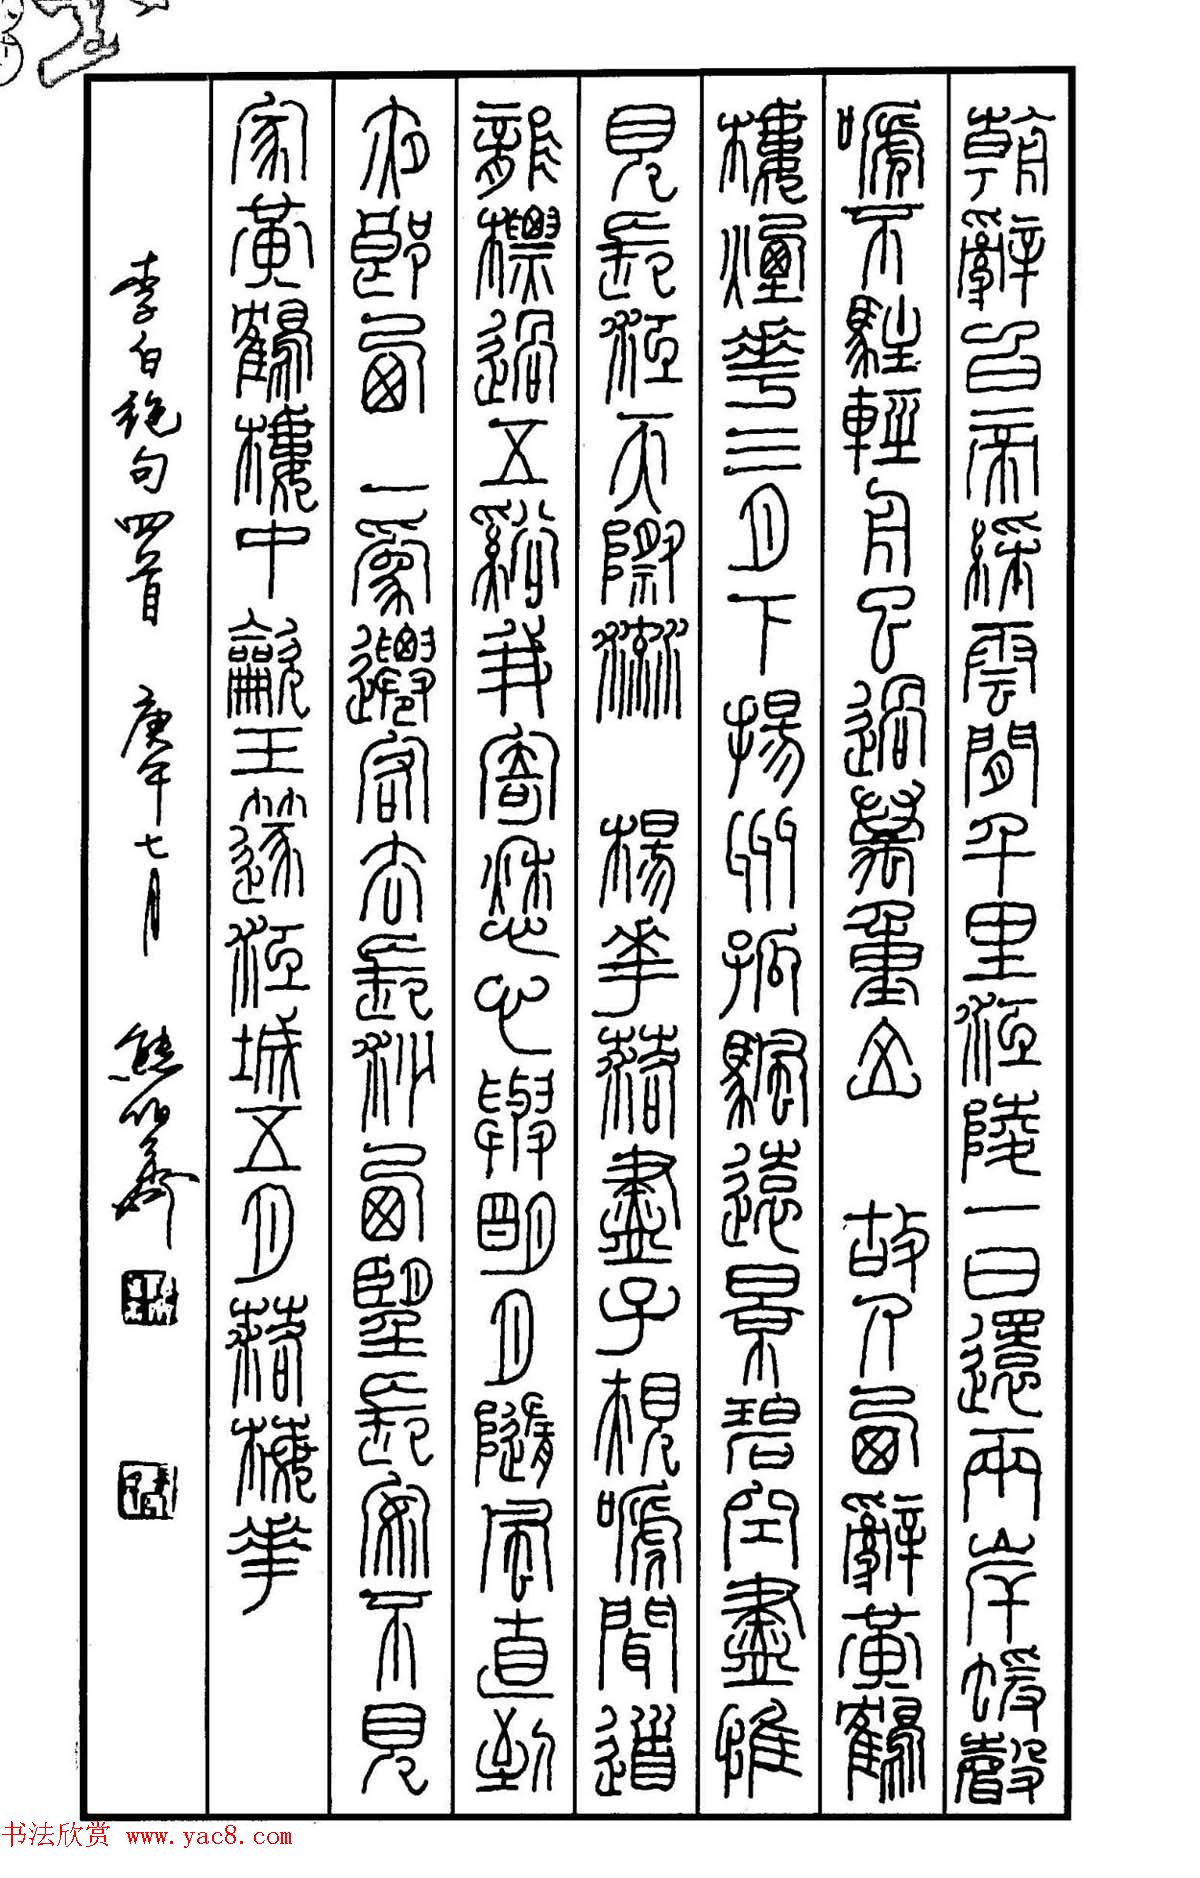 朝辭白帝綵雲間千里江陵一日還兩岸蝯聲
嗁不駐輕舟已過萬重山 故人西辭黃鶴
樓煙華三月下揚州孤颿遠景碧空盡惟
見長江天際流 楊華落盡子規嗁聞道
龍標過五谿我寄愁心與明月隨風直到
夜郎西 一為遷客去長沙西望長安不見
家黃鶴樓中龡玉篴江城五月落梅華
李白絕句四首 庚午七月 熊伯齊
书法欣赏 www.yac8.com